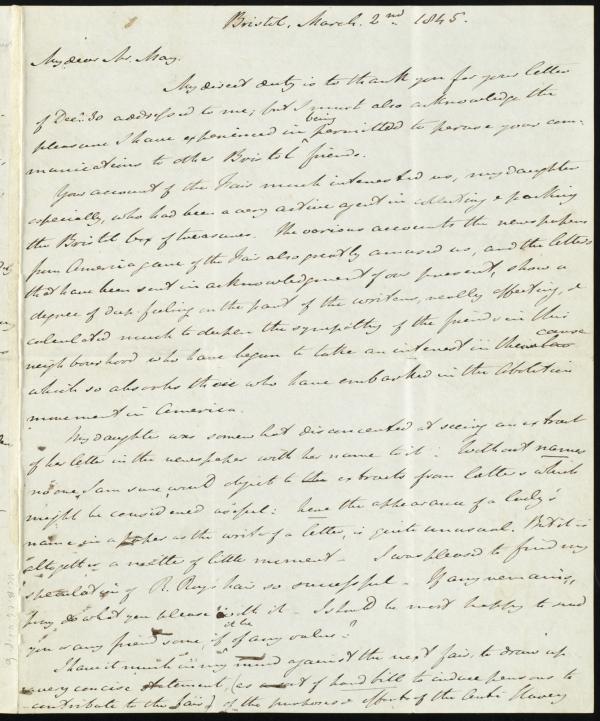 Bristol, March. 2nd 1845.
My dear Mr. May.
My direct duty is to thank you for your letter
of Dec. 30 addressed to me; but I must also acknowledge the
pleasure I have experienced in being permitted to peruse your com-
munications to other Bristol friends.
Your account of the Fair much interested us, my daughter
especially, who had been a very active agent in collecting & packing
the Bristol box of treasures. The various accounts the newspapers
from America gave of the Fair also greatly amused us, and the letters
that have been sent in acknowledgment of our present, show a
degree of deep feeling on the part of the writers, really affecting, &
calculated much to deepen the sympathy of the friends in this
neighbourhood who have begun to take an interest in the cause
which so absorbs those who have embarked in the Abolition
movement in America.
My daughter was somewhat disconcerted at seeing an extract
of her letter in the newspaper with her name to it: Without names
no one, I am sure, would object to extracts from letters which
might be considered useful: here the appearance of a lady's
name in a paper as the writer of a letter, is quite unusual. But it is
altogether a matter of little moment - I was pleased to find my
speculation of R. Roy's hair so successful - If any remains,
pray do what you please with it - I should be most happy to send
you or any friend some, if of any value.
I have it much in my mind against the next fair, to draw up
a very concise statement, (as a sort of hand bill to induce persons to
contribute to the fair) of the purposes & effect of the Anti Slavery